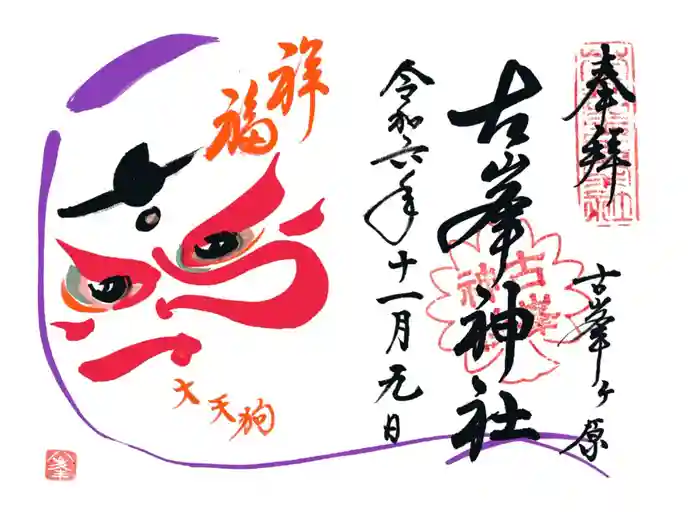 奉拝
古峯ヶ原
古峯神社
令和六年十一月元日
祥福
大天狗